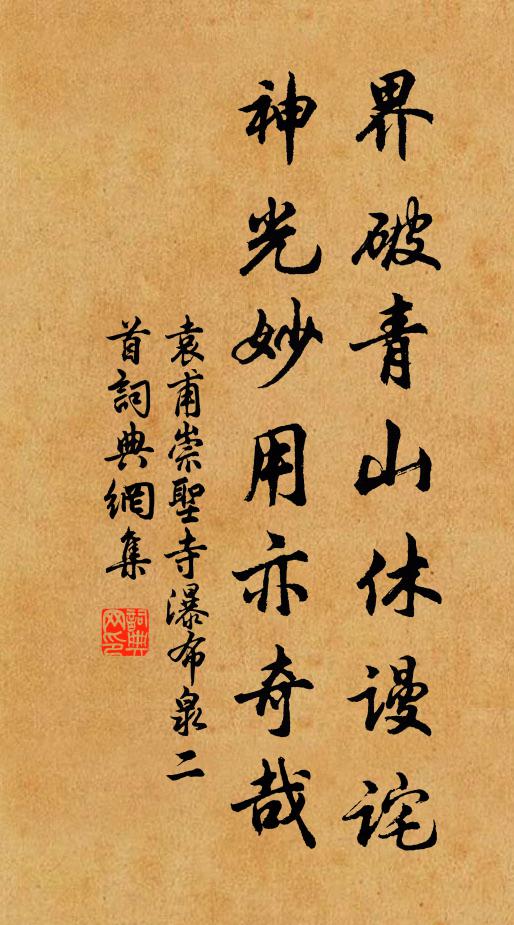 界破青山休謾詫
神光妙用亦奇哉
袁甫崇聖寺瀑布泉二
首詞典網集
詞典
网印